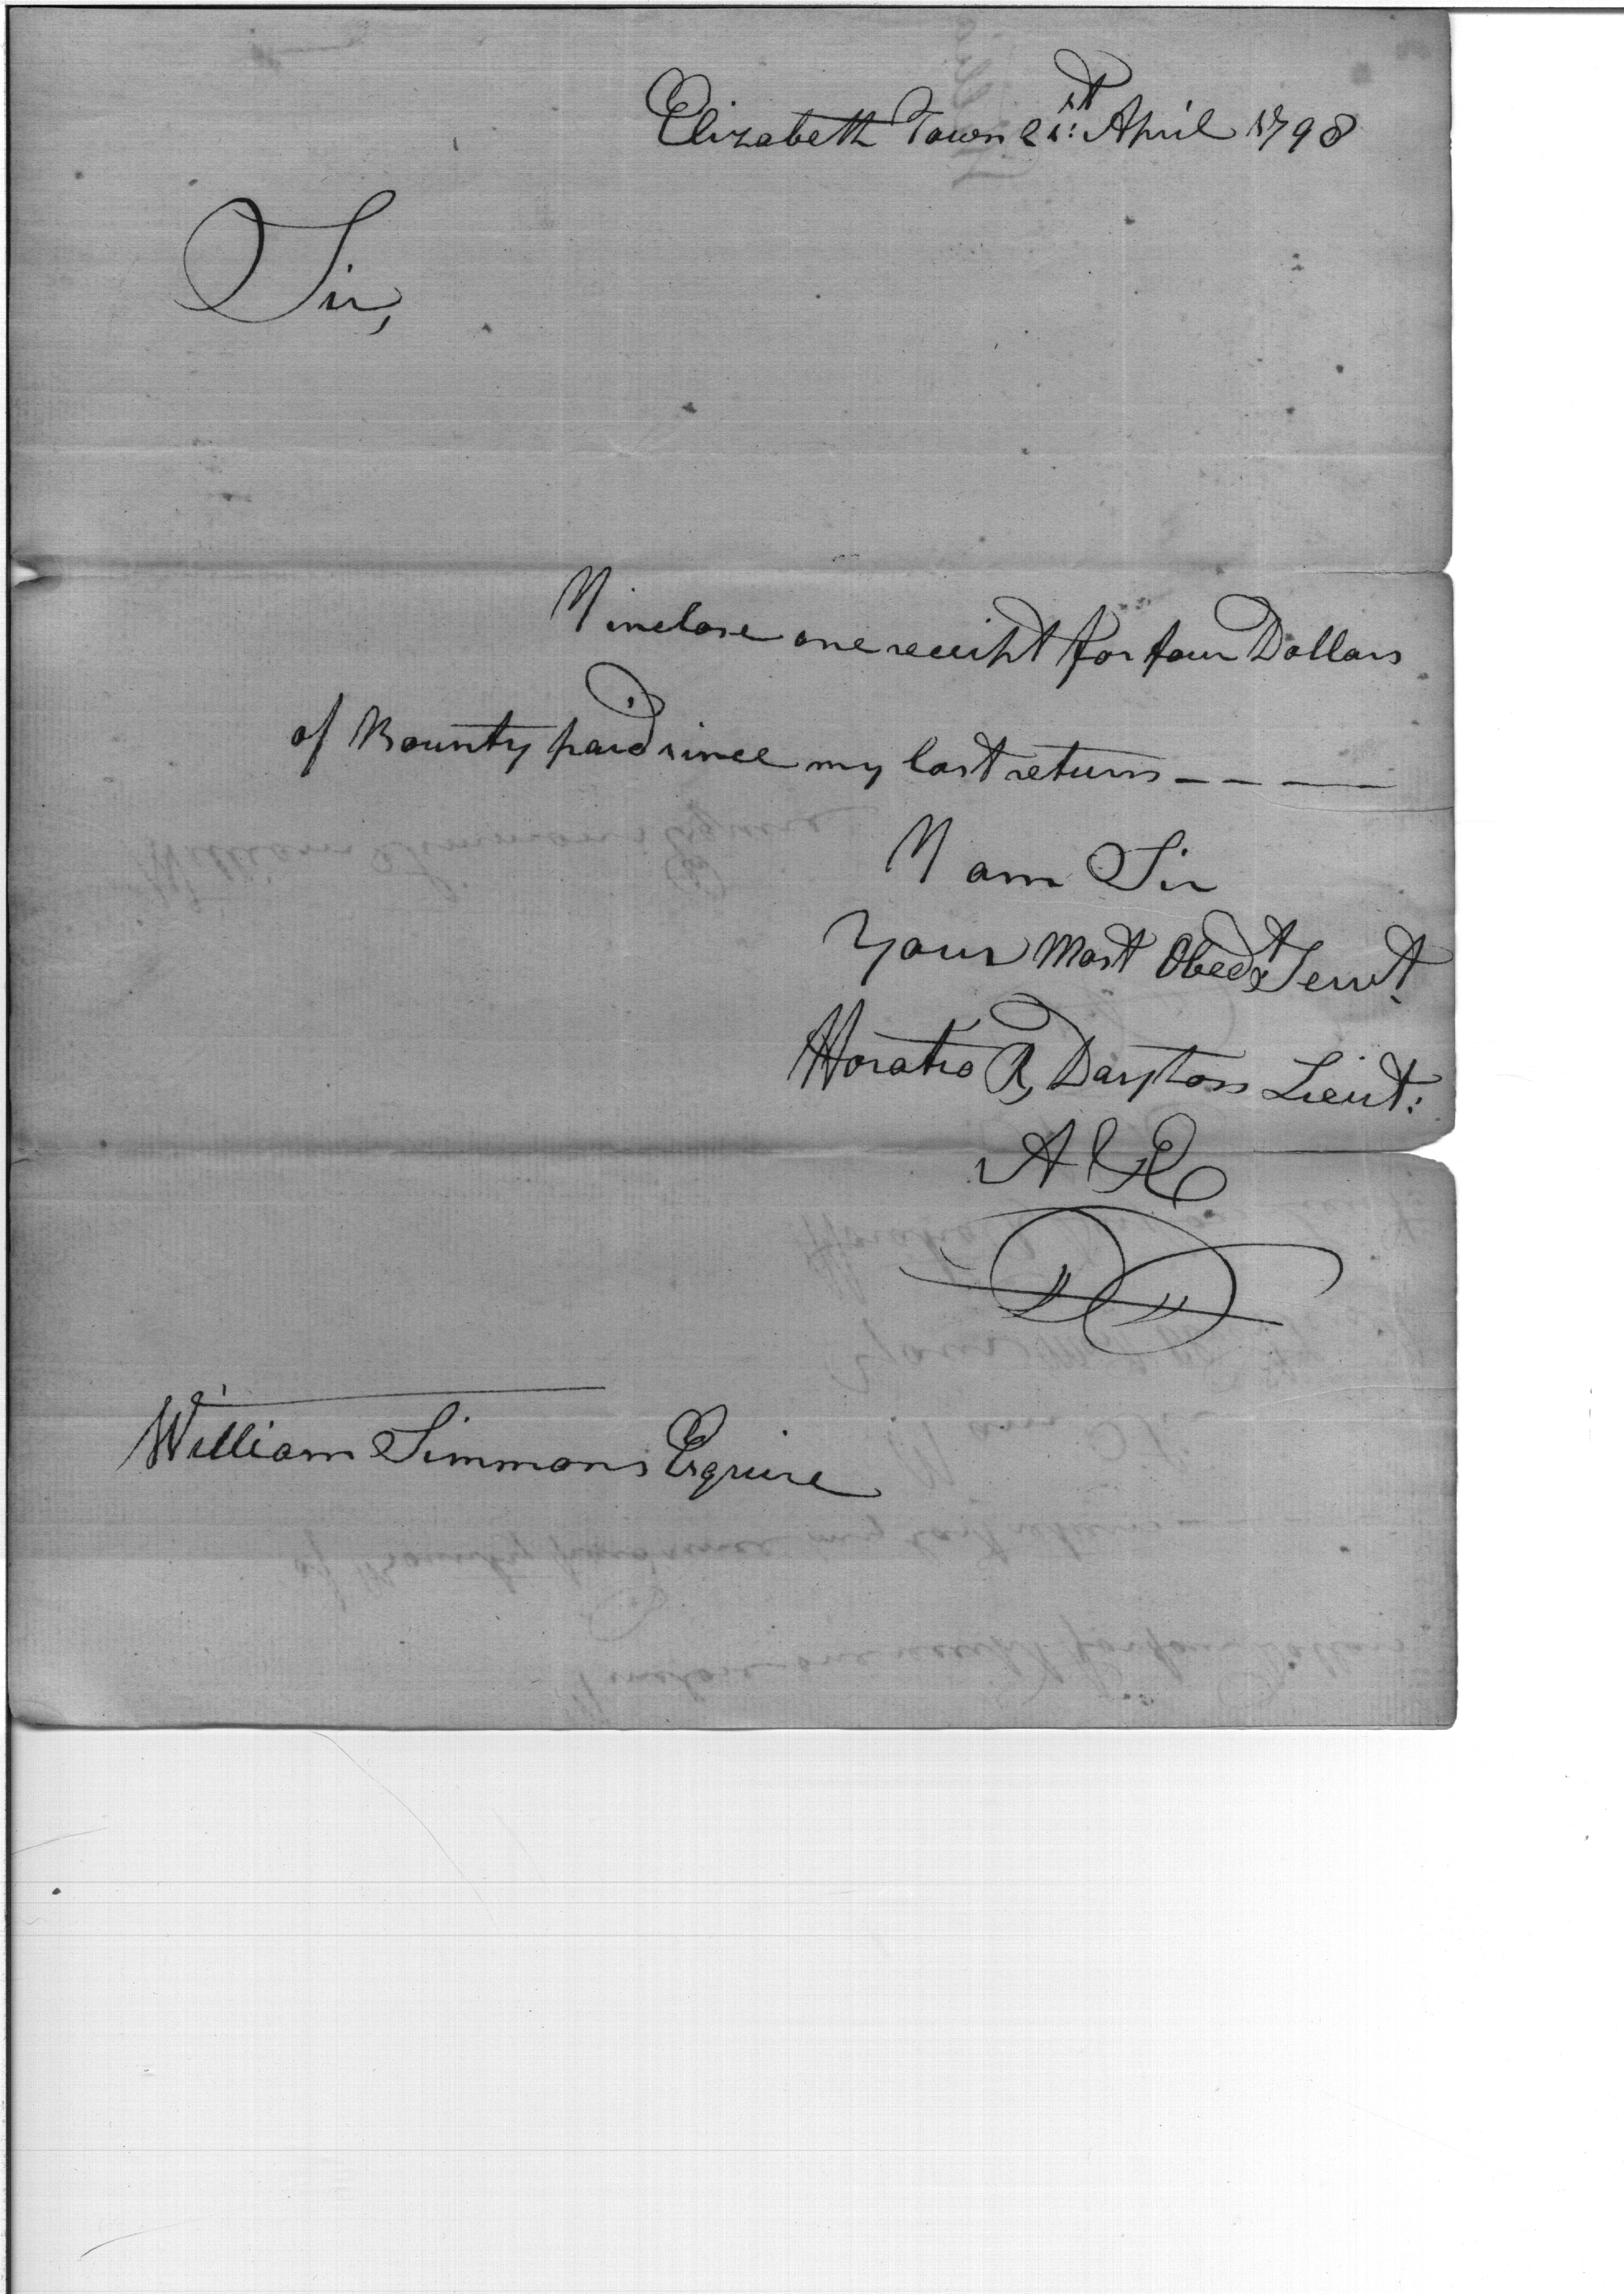 Elizabeth Town 21st: April 1798
Sir,
I inclose one receipt for four Dollars
of Bounty paid since my last return - - - —
I am Sir
Your Most Obedt Servt.
Horatio R, Dayton Lieut:
A &E
William Simmons Esquire